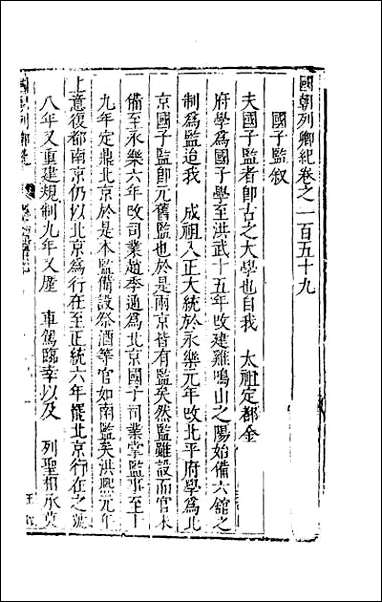 國朝列卿紀卷之一百五十九
國子監叙
夫國子監者卽古之大學也自我 太祖定都金
府學爲國子學至洪武十五年改建雞鳴山之陽始備六舘之
制爲監迨我 成祖入正大統於永樂元年改北平府學爲北
京國子監卽元舊監也於是兩京皆有監矣然監雖設而官未
備至永樂六年改司業趙季通爲北京國子司業掌監事至十
九年定鼎北京於是本監備設祭酒等官如南監矣洪熙元年
上意復都南京仍以北京爲行在至正統六年擺北京行在之
八年又重建規制九年又 車駕臨幸以及 列聖相承
國朝列卿紀